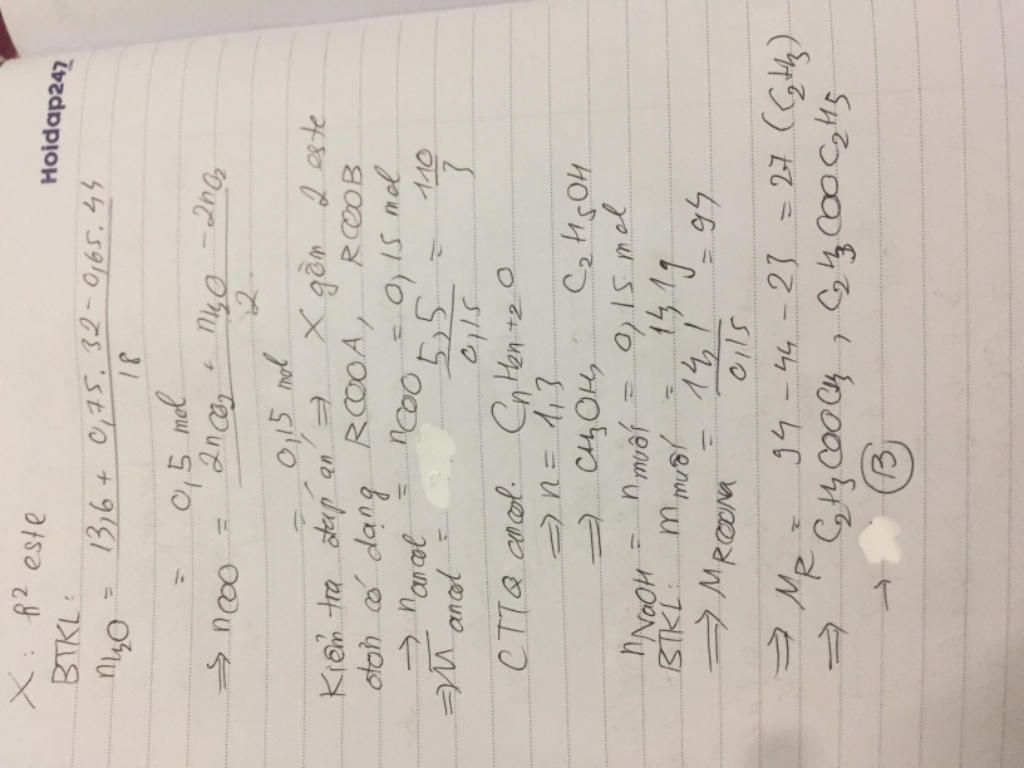 Hoidap247
X: h² este
BTKL:
n_H2O = 13,6 + 0,75.32 - 0,65.44 / 18
= 0,5 mol
=> nCOO = 2nCO2 + nH2O - 2nO2 / 2
= 0,15 mol
Kiểm tra đáp án => X gồm 2 este
đơn có dạng RCOOA, RCOOB
=> n ancol = nCOO = 0,15 mol
=> M̅ ancol = 5,5 / 0,15 = 110 / 3
CTTQ ancol. CnH2n+2O
=> n = 1,3
=> CH3OH, C2H5OH
nNaOH = n muối = 0,15 mol
BTKL: m muối = 14,1g
=> M RCOONa = 14,1 / 0,15 = 94
=> MR = 94 - 44 - 23 = 27 (C2H3)
=> C2H3COOCH3, C2H3COOC2H5
→ B